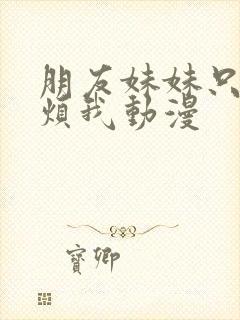 朋友妹妹只
煩我動漫
寶卿